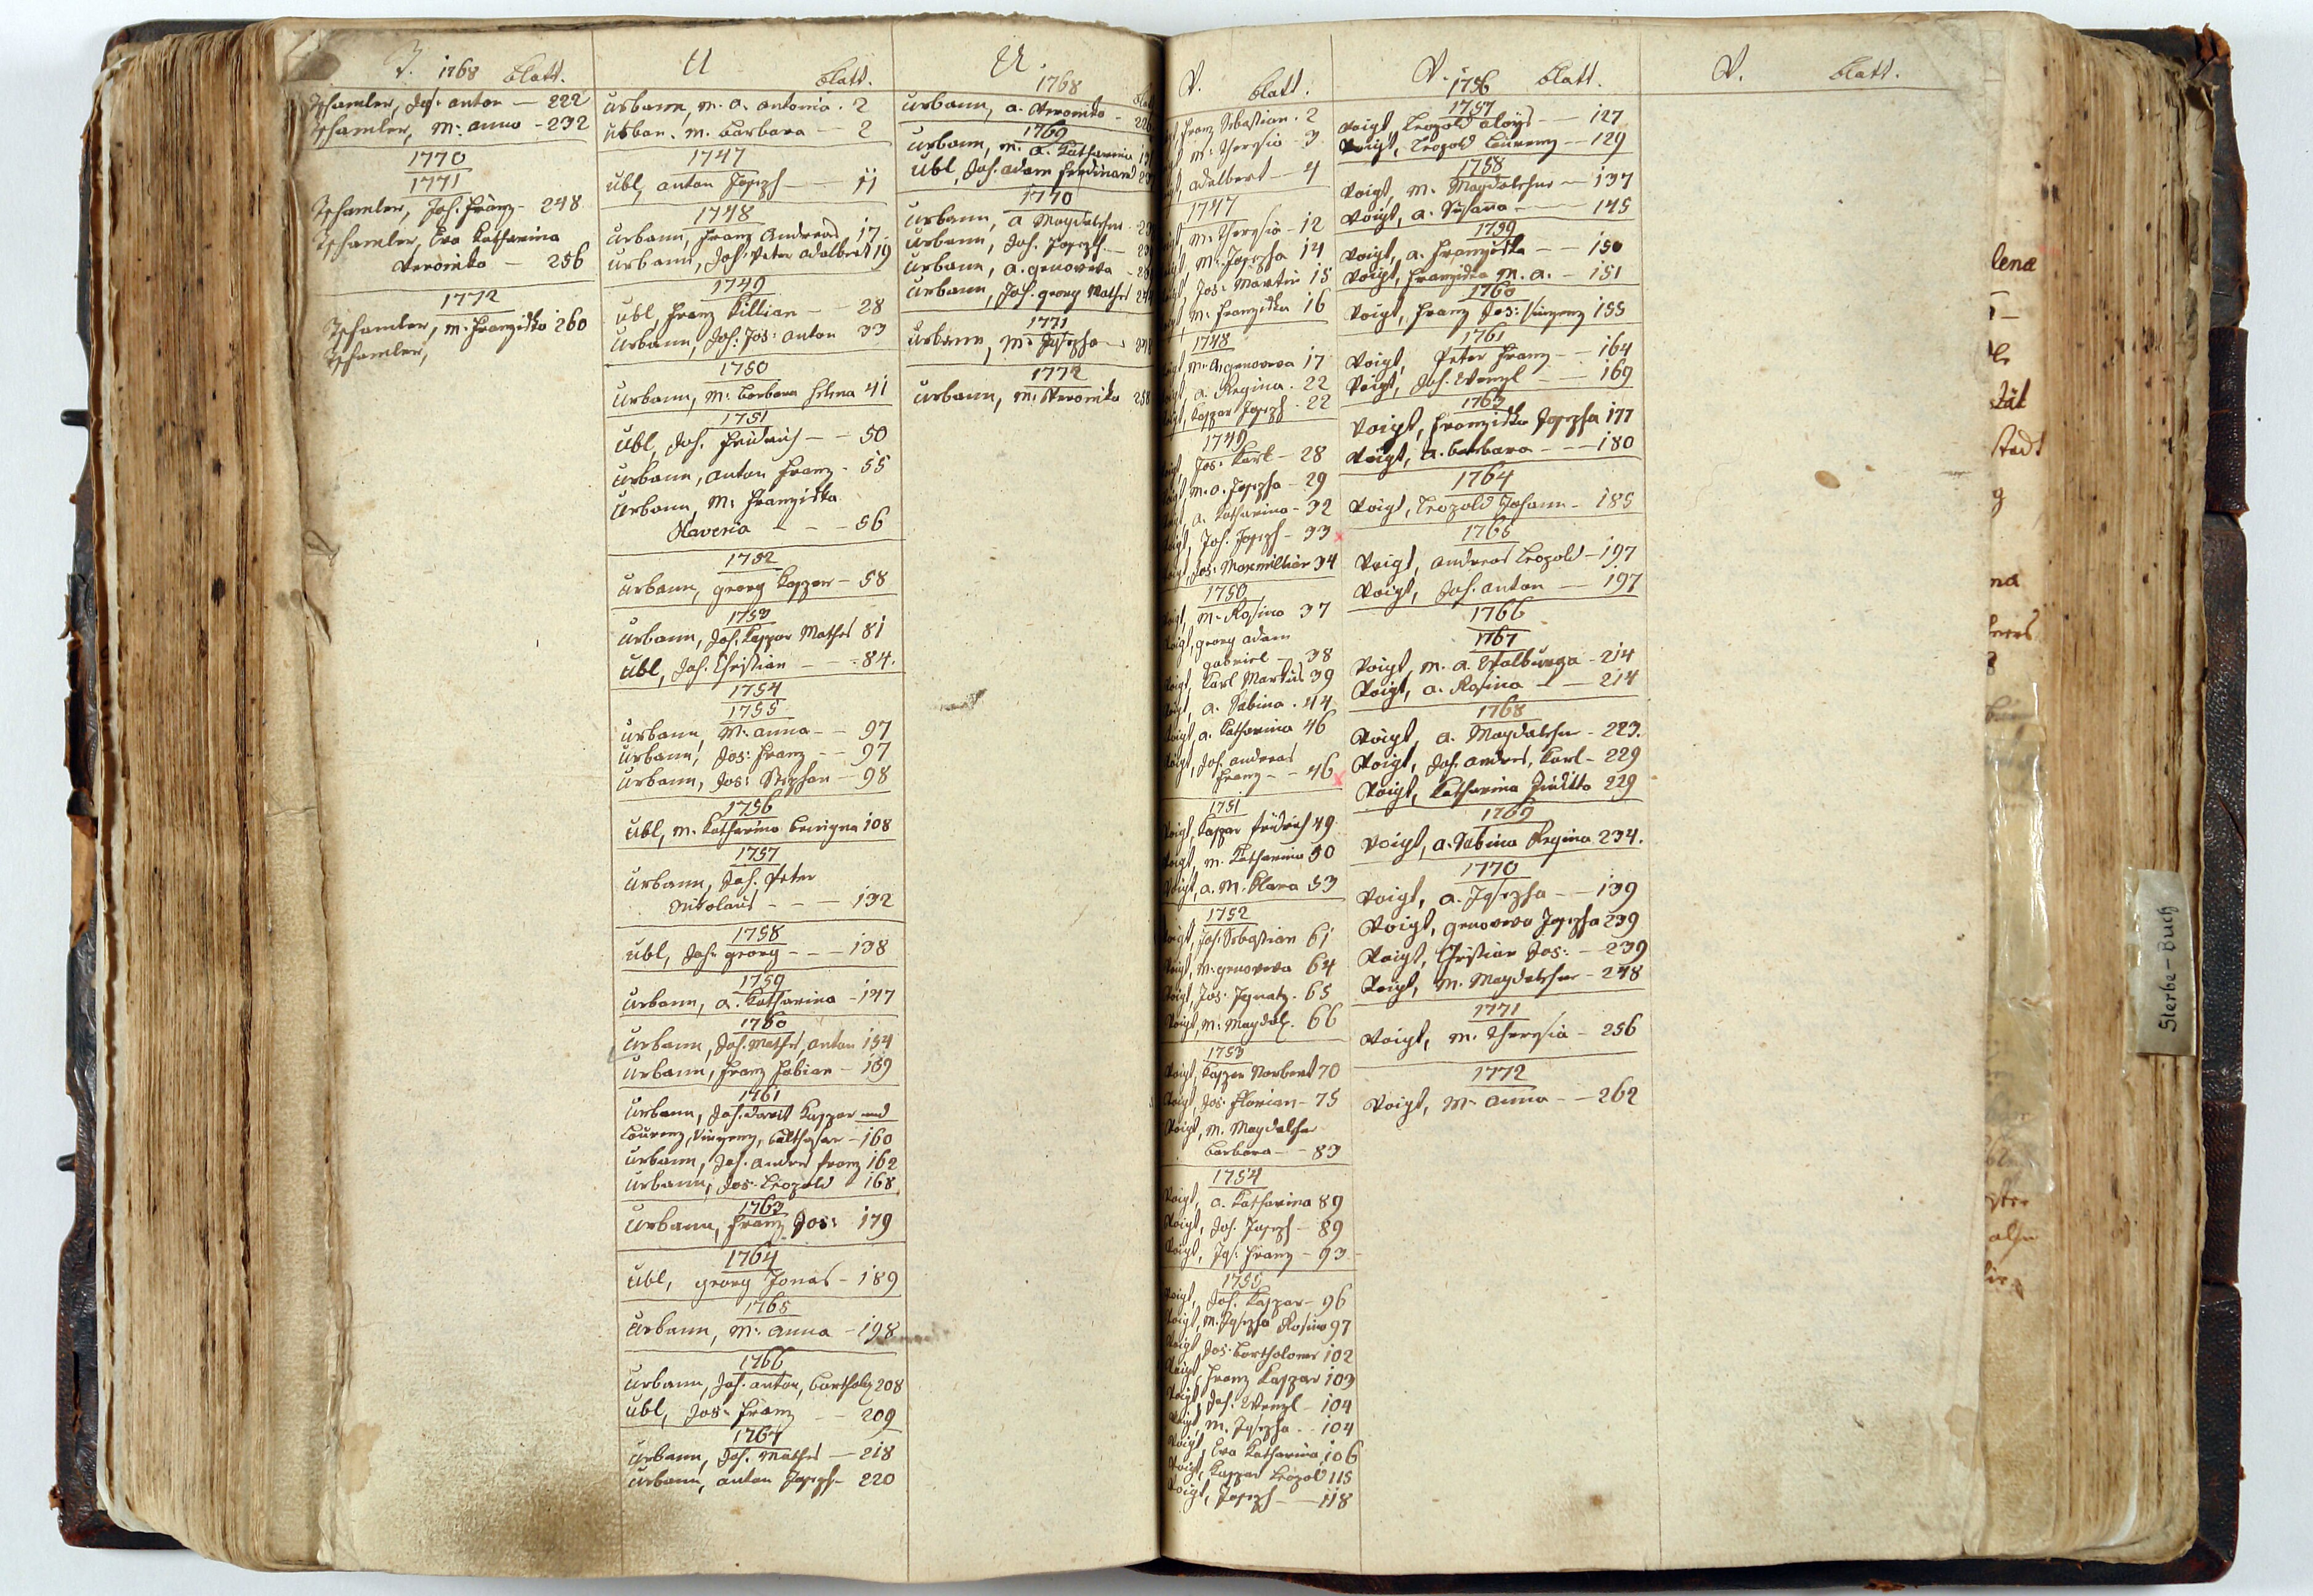 T. 1768 blatt.
Tschamler, Jos: anton — 222
Tschamler, M: anna - 232
1770
1771
Tschamler, Joh. Franz - 248
Tschamler, Eva Katharina
Veronika — 256
1772
Tschamler, M: Franziska 260
Tschamler,
U blatt.
Urbann, M. a. antonia . 2
Urban. M. Barbara — 2
1747
Ubl, anton Joseph — 11
1748
Urbann, Franz Andreas 17.
Urbann, Joh: Peter adalbert 19
1749
Ubl Franz Killian — 28
Urbann, Joh: Jos: anton 33
1750
Urbann, M: Barbara Helena 41
1751
Ubl, Joh. Fridrich — - 50
Urbann, anton Franz - 55
Urbann, M: Franziska
Xaveria - - - 56
1752
Urbann, georg Kasper - 58
1753
Urbann, Joh. Kaspar Mathes 81
Ubl, Joh. Christian — - 84.
1754
1755
Urbann, M: anna - - 97
Urbann, Jos: Franz - - 97
Urbann, Jos: Stephan — 98
1756
Ubl, M. Katharina Benigna 108
1757
Urbann, Joh. Peter
Nikolaus - - — 132
1758
Ubl, Joh: georg - - - 138
1759
Urbann, a. Katharina - 147
1760
Urbann, Joh. Mathes, anton 154
Urbann, Franz Fabian - 159
1761
Urbann, Joh. David Kaspar und
Laurenz, Vinzenz, Balthasar - 160
Urbann, Joh. andre Franz 162
Urbann, Jos. Leopold 168.
1763
Urbann, Franz Jos: 179
1764
Ubl, georg Jonas - 189
1765
Urbann, M: anna - 198
1766
Urbann, Joh. anton, Bartholo 208
Ubl, Jos: Franz — 209
1767
Urbann, Joh. Mathes — 218
Urbann, anton Joseph - 220
U.
1768
Urbann, a. Veronika - 226
1769
Urbann, M. a. Katharina
Ubl, Joh. adam Ferdinand
1770
Urbann, a Magdalena
Urbann, Joh. Joseph
Urbann, a. genoveva
Urbann, Joh. georg Mathes
1771
Urbann, M: Josepha
1772
Urbann, M: Veronika 258
V. blatt.
Franz Sebastian . 2
M: Theresia - 3
adalbert — 4
1747
M: Theresia - 12
M: Josepha 14
Jos: Martin 15
M: Franziska 16
1748
M: a. genoveva 17
a. Regina . 22
Kaspar Joseph . 22
1749
Jos: Karl - 28
M. a. Josepha - 29
a. Katharina - 32
Voigt, Joh. Joseph - 33
Voigt, Jos: Maximillian 34
1750
Voigt, M: Rosina 37
Voigt, georg adam
gabriel — 38
Voigt, Karl Martin 39
Voigt, a. Sabina . 44
Voigt, a. Katharina 46
Voigt, Joh. andreas
Franz - - 46
1751
Voigt, Kaspar Fridrich 49
Voigt, M. Katharina 50
Voigt, a. M. Klara 53
1752
Voigt, Joh. Sebastian 61
Voigt, M: genoveva 64
Voigt, Jos: Ignatz . 65
Voigt, M: Magdal. 66
1753
Voigt, Kasper Norbert 70
Voigt, Jos: Florian - 75
Voigt, M. Magdalena
Barbara - - 83
1754
Voigt, a. Katharina 89
Voigt, Joh. Joseph - 89
Voigt, Jos: Franz - 93
1755
Voigt, Joh. Kaspar - 96
Voigt, M. Josepha Rosina 97
Voigt, Jos: Bartholome 102
Voigt, Franz Kaspar 103
Voigt, Joh: Wenzl - 104
Voigt, M. Josepha - - 104
Voigt, Eva Katharina 106
Voigt, Kaspar Leopold 115
Voigt, Joseph — 118
V. 1756 blatt.
1757
Voigt, Leopold aloys — 127
Voigt, Leopold Laurenz — 129
1758
Voigt, M. Magdalena — 137
Voigt, a. Susana — 145
1759
Voigt, a. Franziska — - 150
Voigt, Franziska M. a. - 151
1760
Voigt, Franz Jos: Vinzenz 155
1761
Voigt, Peter Franz - - 164
Voigt, Joh. Wenzl — 169
1763
Voigt, Franziska Josepha 177
Voigt, a. barbara - — 180
1764
Voigt, Leopold Johann - 185
1765
Voigt, andreas Leopold - 197
Voigt, Joh. anton — 197
1766
1767
Voigt, M. a. Walburga - 214
Voigt, a. Rosina — - 214
1768
Voigt, a. Magdalena - 223.
Voigt, Joh. andres, Karl - 229
Voigt, Katharina Juditta 229
1769
Voigt, a. Sabina Regina 234.
1770
Voigt, a. Josepha - - 139
Voigt, genoveva Josepha 239
Voigt, Christian Jos: - 239
Voigt, M. Magdalena - 248
1771
Voigt, M. Theresia - 256
1772
Voigt, M. anna - - 262
V. blatt.
Sterbe-Buch